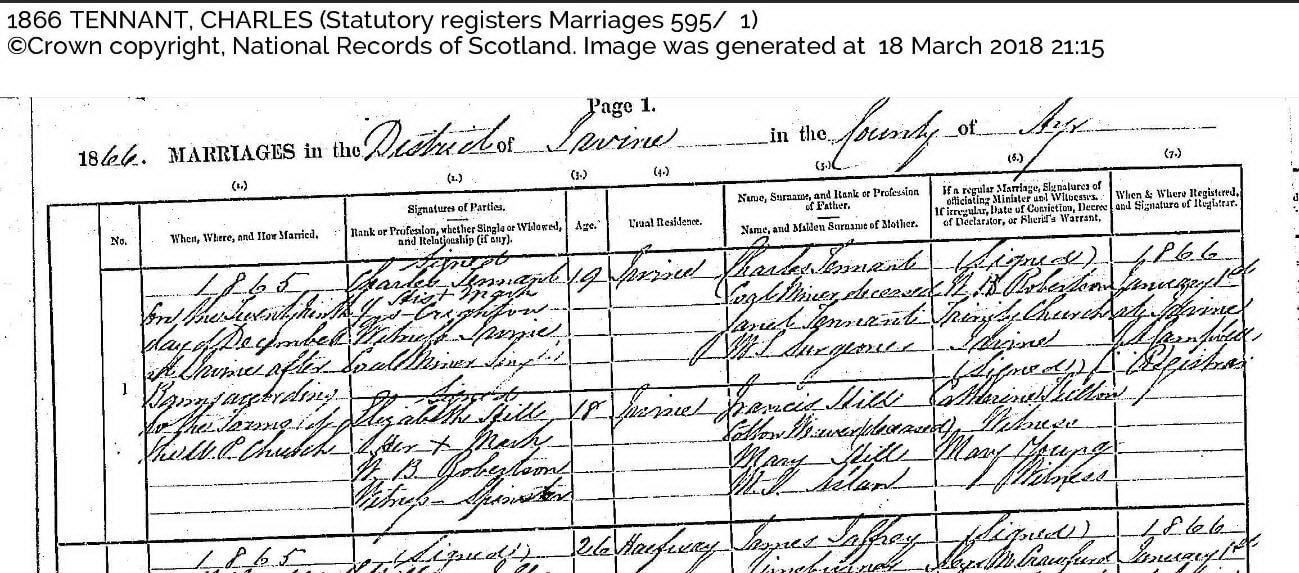 1866 TENNANT, CHARLES (Statutory registers Marriages 595/ 1)
©Crown copyright, National Records of Scotland. Image was generated at 18 March 2018 21:15
Page 1.
1866. MARRIAGES in the District of Irvine in the County of Ayr
(1.) (2.) (3.) (4.) (5.) (6.) (7.)
No.
When, Where, and How Married.
Signatures of Parties.
Rank or Profession, whether Single or Widowed,
and Relationship (if any).
Age.
Usual Residence.
Name, Surname, and Rank or Profession
of Father.
Name, and Maiden Surname of Mother.
If a regular Marriage, Signatures of
officiating Minister and Witnesses.
If irregular, Date of Conviction, Decree
of Declarator, or Sheriff's Warrant.
When & Where Registered,
and Signature of Registrar.
1
1865
On the Twenty Ninth
day of December
At Irvine after
Banns according
to the Forms of
the U. P. Church
Signed
Charles Tennant
His X Mark
Creighton
Witness Irvine
Coal Miner Single
Signed
Elizabeth Hill
Her + Mark
W. B. Robertson
Witness Spinster
19
18
Irvine
Irvine
Charles Tennant
Coal Miner deceased
Janet Tennant
M.S. Surgeoner
Francis Hill
Cotton Weaver (deceased)
Mary Hill
M.S.
(Signed)
W. B. Robertson
Trinity Church
Irvine
(Signed)
Catherine
Witness
Mary Young
Witness
1866
January 1st
At Irvine
Campbell
Registrar
1865
(Signed)
26
Halfway
James Jaffray
(Signed)
Crawford
1866
January 1st